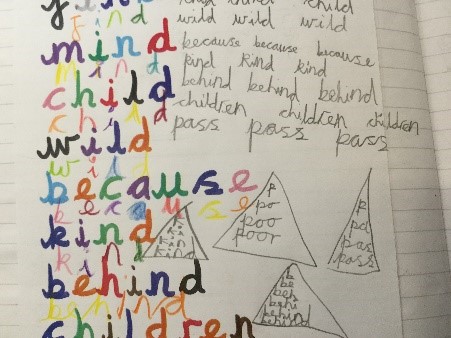 find
find
mind
mind
child
child
wild
wild
because
because
kind
kind
behind
behind
children
child child child
wild wild wild
because because because
kind kind kind
behind behind behind
children children children
pass pass pass
k
ki
kin
kind
p
po
poo
poor
p
pa
pas
pass
b
be
beh
behi
behin
behind